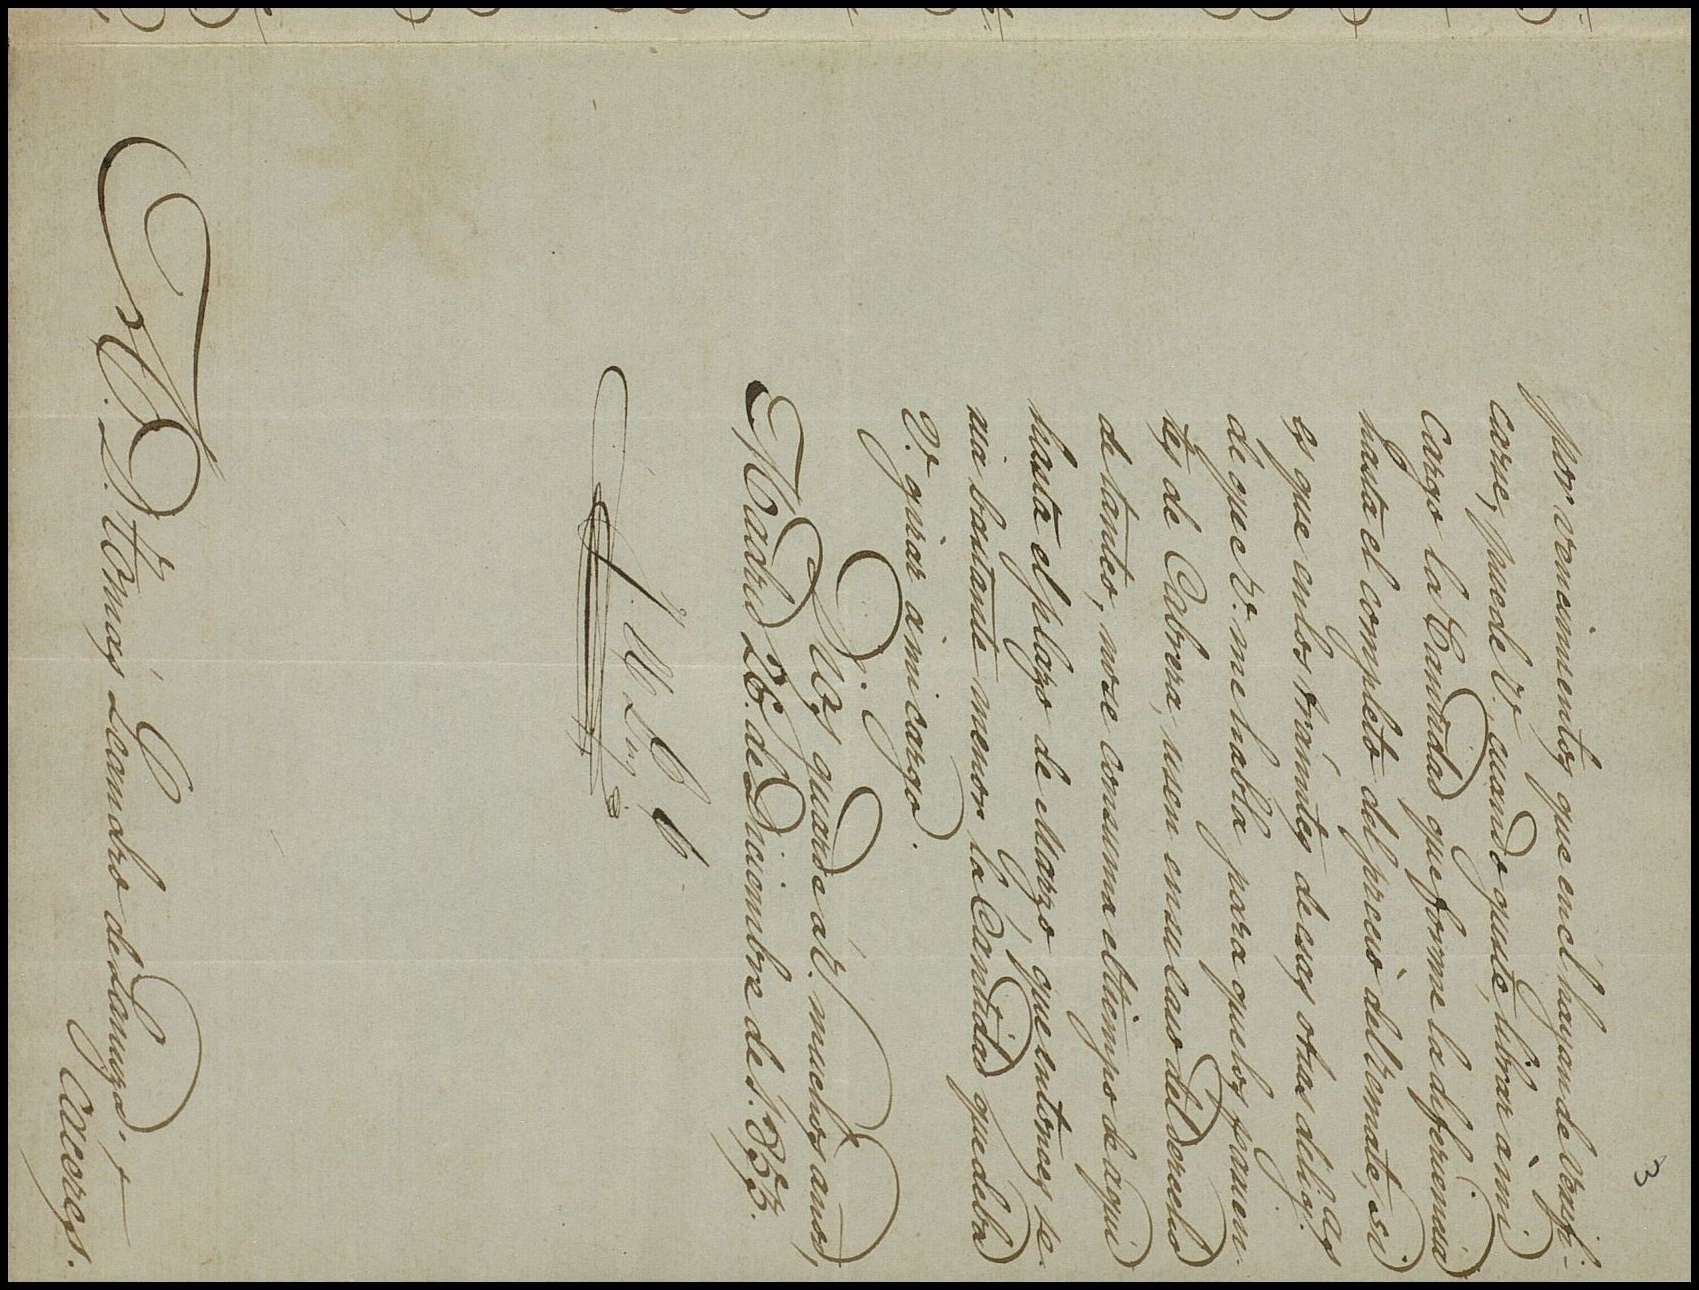 3
por vencimientos que en él hayan de verifi-
carse, puede V. cuando guste, librar á mi
cargo la Cantidad que forme la diferencia
hasta el completo del precio del remate, si
es que en los trámites de esas otras dilig.as
de que V. me habla para que los parien-
tes de Cabrera, usen en su caso del derecho
de tanteo, no se consuma el tiempo de aqui
hasta el plazo de Marzo, que entonces se-
ria bastante menor la Cantidad que deba
V. girar á mi cargo.
Dios guarde á V. muchos años,
Madrid 26. de Diciembre de 1.855.
S.r D. Tomás Leandro de Lanuza.
Caceres.